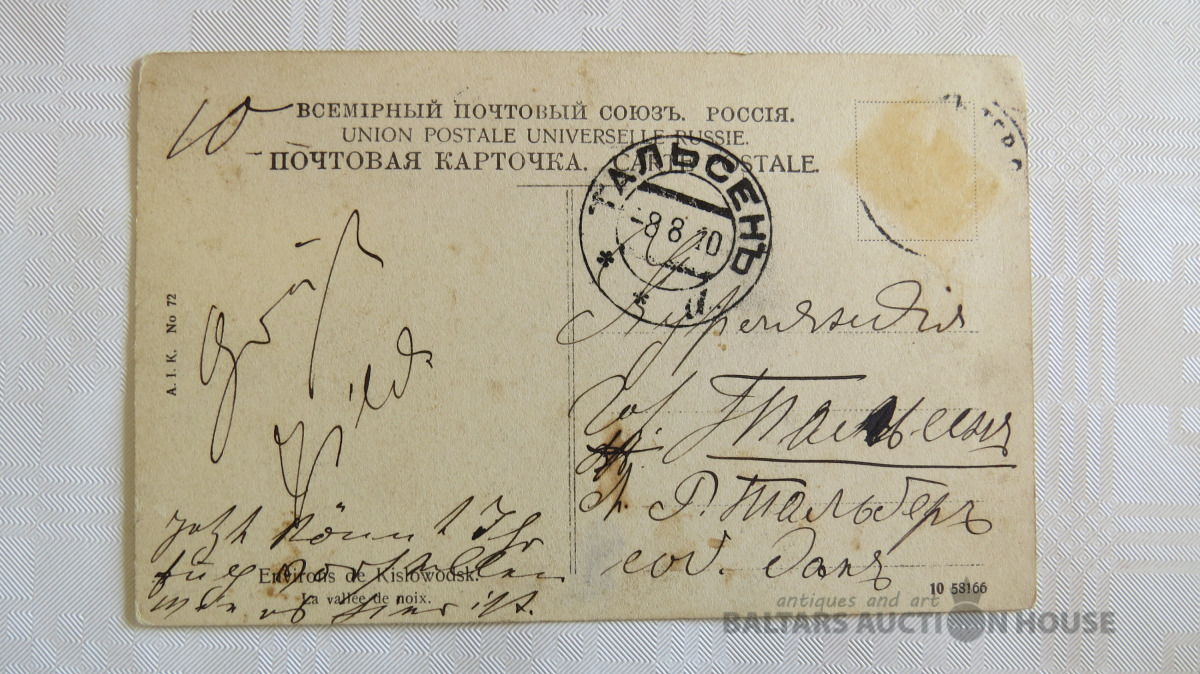 10
ВСЕМІРНЫЙ ПОЧТОВЫЙ СОЮЗЪ. РОССІЯ.
UNION POSTALE UNIVERSELLE RUSSIE.
ПОЧТОВАЯ КАРТОЧКА. CARTE POSTALE.
ТАЛЬСЕНЪ
-8 8 10
A. I. K. No 72
Курляндія
Тальсенъ
Г. Тальбергъ
соб. домъ
Jetzt könnt Ihr
Euch vorstellen
wie es hier ist.
Environs de Kislowodsk.
La vallée de noix.
10 58166
antiques and art
BALTARS AUCTION HOUSE